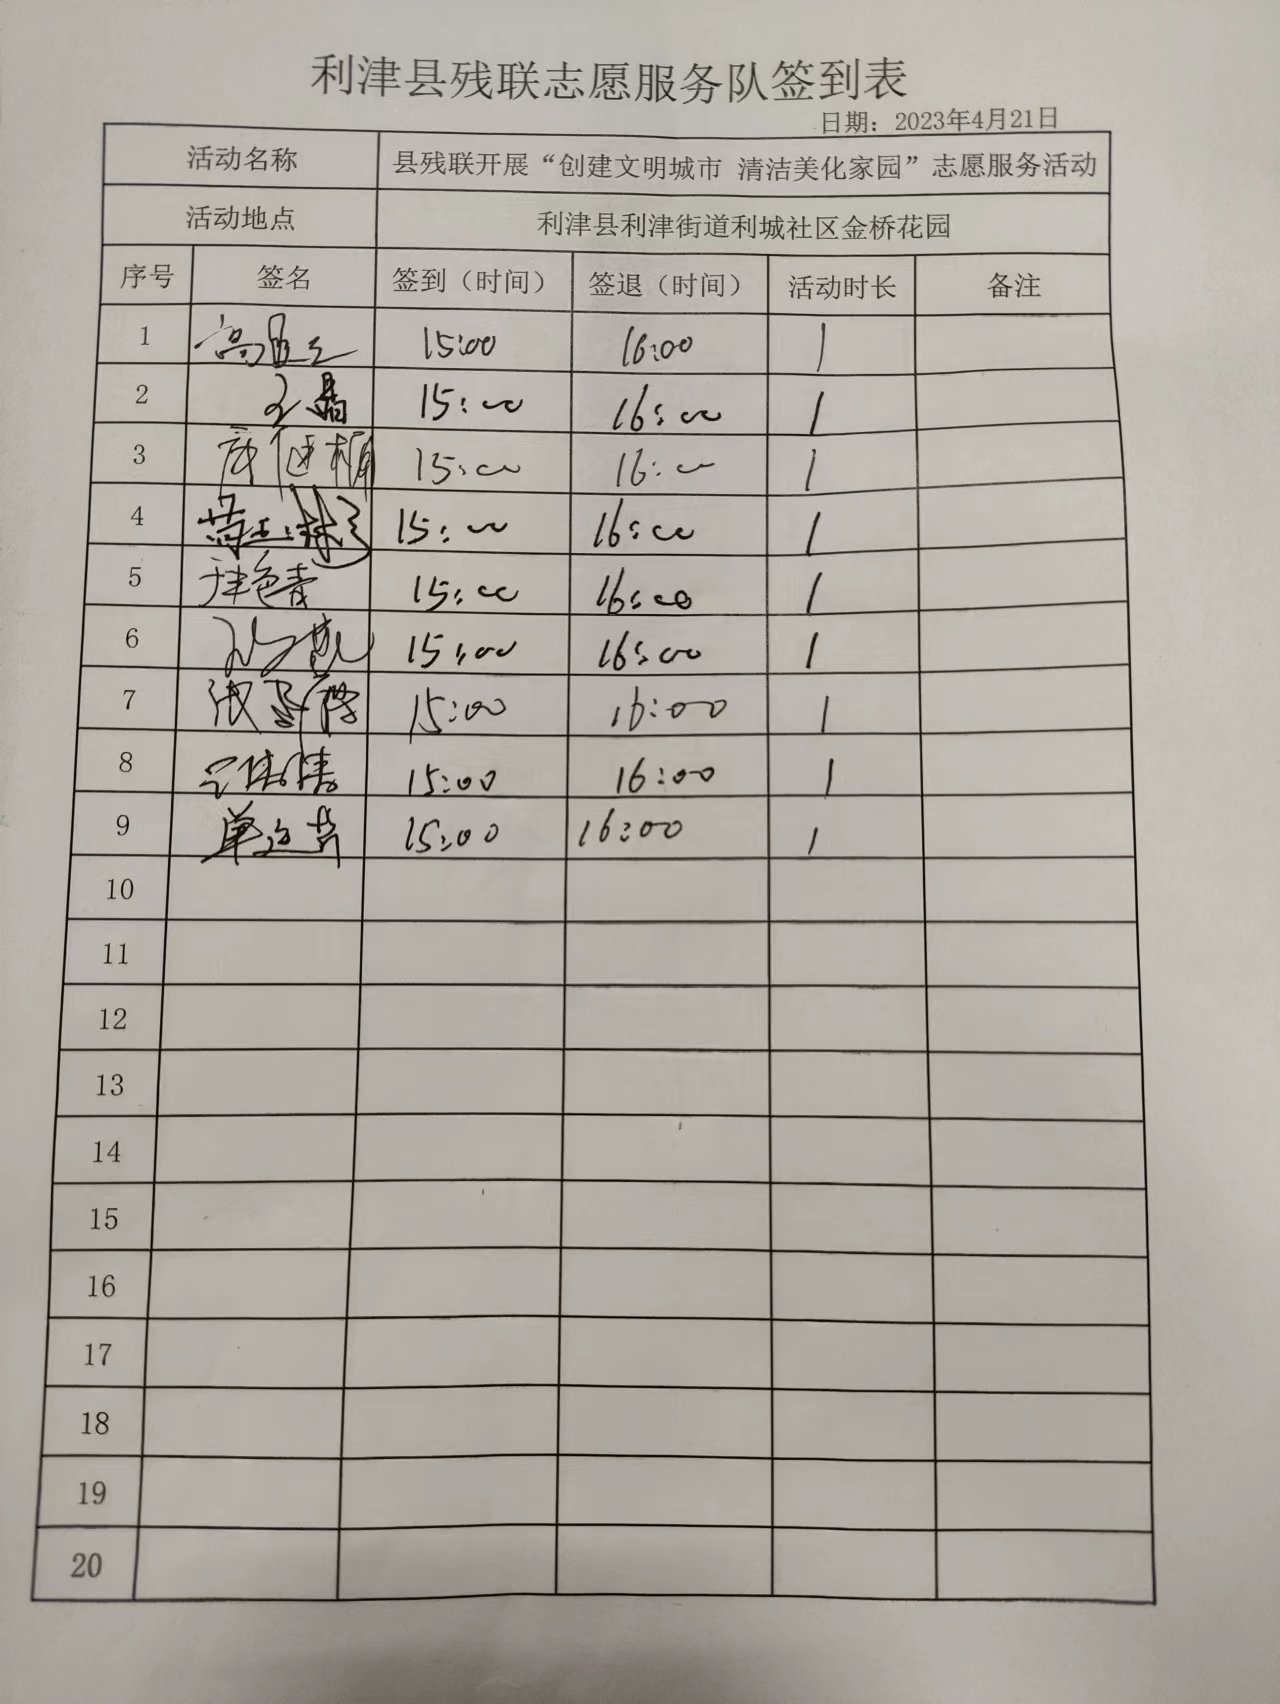 利津县残联志愿服务队签到表
日期：2023年4月21日
活动名称 县残联开展“创建文明城市 清洁美化家园”志愿服务活动
活动地点 利津县利津街道利城社区金桥花园
序号 签名 签到（时间） 签退（时间） 活动时长 备注
1 15:00 16:00 1
2 15:00 16:00 1
3 15:00 16:00 1
4 15:00 16:00 1
5 15:00 16:00 1
6 15:00 16:00 1
7 15:00 16:00 1
8 15:00 16:00 1
9 15:00 16:00 1
10
11
12
13
14
15
16
17
18
19
20